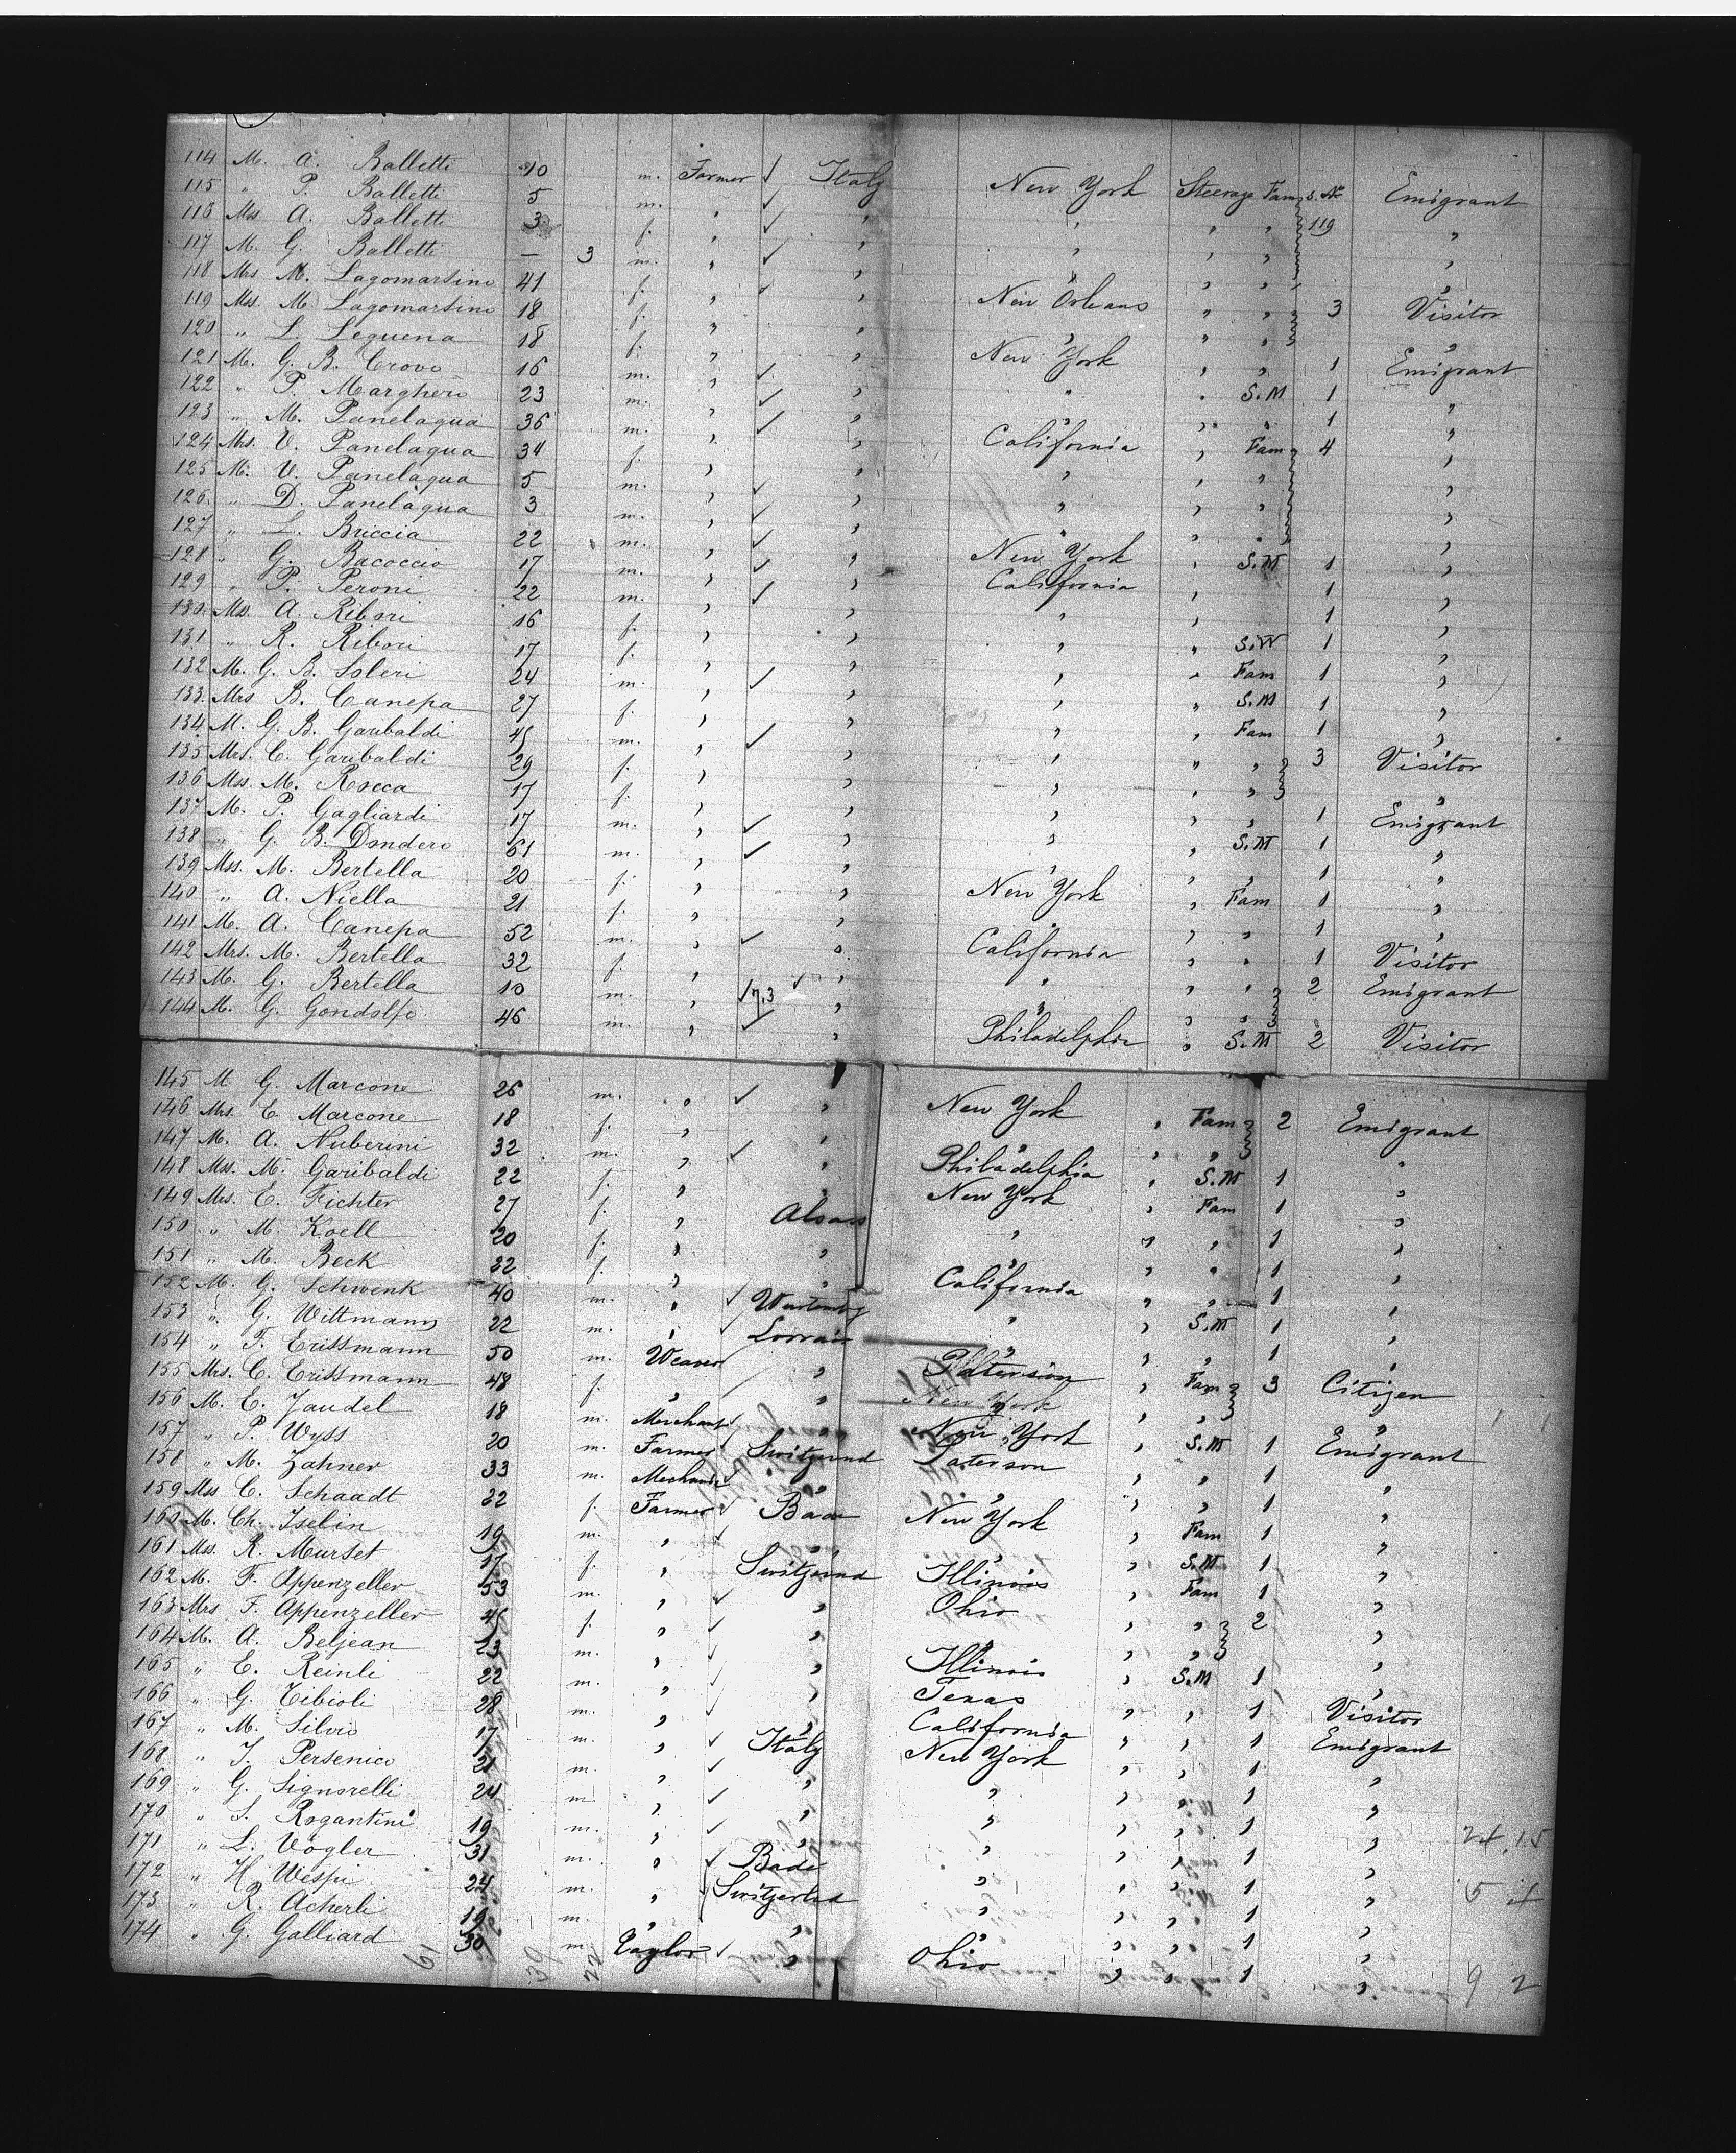 114 M. A. Balletti 10 m. Farmer ✓ Italy New York Steerage Fam s. No 119 Emigrant
115 " P. Balletti 5 m. " ✓ " " " " "
116 Mss A. Balletti 3 f. " ✓ " " " " "
117 M. G. Balletti — 3 m. " ✓ " " " " "
118 Mrs M. Lagomarsino 41 f. " " New Orleans " " 3 Visitor
119 Mss. M. Lagomarsino 18 f. " " " " " "
120 " L. Leguena 18 f. " " New York " " 1 Emigrant
121 M. G. B. Crovo 16 m. " ✓ " " " S.M 1 "
122 " P. Marghero 23 m. " ✓ " " " " 1 "
123 " M. Panelaqua 36 m. " ✓ " California " Fam 4 "
124 Mrs. V. Panelaqua 34 f. " " " " " "
125 M. V. Panelaqua 5 m. " ✓ " " " " "
126 " D. Panelaqua 3 m. " ✓ " " " " "
127 " L. Briccia 22 m. " ✓ " New York " S.M 1 "
128 " G. Bacoccio 17 m. " ✓ " California " 1 "
129 " P. Peroni 22 m. " ✓ " " " 1 "
130 Mss. A. Ribori 16 f. " " " " S.W 1 "
131 " R. Ribori 17 f. " " " " Fam 1 "
132 M. G. B. Soleri 24 m. " ✓ " " " S.M 1 "
133 Mrs B. Canepa 27 f. " " " " Fam 1 "
134 M. G. B. Garibaldi 45 m. " ✓ " " " " 3 Visitor
135 Mrs. C. Garibaldi 29 f. " " " " " "
136 Mss. M. Rocca 17 f. " " " " " 1 Emigrant
137 M. P. Gagliardi 17 m. " ✓ " " " S.M 1 "
138 " G. B. Dondero 61 m. " ✓ " " " " 1 "
139 Mss. M. Bertella 20 f. " " New York " Fam 1 "
140 " A. Niella 21 f. " " " " " 1 "
141 M. A. Canepa 52 m. " ✓ " California " " 1 Visitor
142 Mrs. M. Bertella 32 f. " ✓ " " " " 2 Emigrant
143 M. G. Bertella 10 m. " ✓ " " " "
144 M. G. Gondolfo 46 m. " ✓ " Philadelphia " S.M 2 Visitor
145 M G. Marcone 26 m. " ✓ " New York " Fam 2 Emigrant
146 Mrs. E. Marcone 18 f. " " " " " "
147 M. A. Nuberini 32 m. " ✓ " Philadelphia " S.M 1 "
148 Mss. M. Garibaldi 22 f. " " New York " Fam 1 "
149 Mrs. E. Fichter 27 f. " Alsass " " " 1 "
150 " M. Koell 20 f. " " " " " 1 "
151 " M. Beck 22 f. " " California " " 1 "
152 M. G. Schwenk 40 m. " ✓ Wurtembg " " S.M 1 "
153 " G. Wittmann 22 m. " ✓ Lorrain " " " 1 "
154 " F. Erissmann 50 m. Weaver " Paterson " Fam 3 Citizen
155 Mrs. C. Erissmann 48 f. " " New York " " "
156 M. E. Jaudel 18 m. Merchant ✓ " New York " S.M 1 Emigrant
157 " P. Wyss 20 m. Farmer ✓ Switzernd Paterson " " 1 "
158 " M. Zahner 33 m. Mechanic ✓ " " " " 1 "
159 Mss C. Schaadt 22 f. Farmer ✓ Bade New York " Fam 1 "
160 M. Ch. Iselin 19 m. " ✓ " " " S.M 1 "
161 Mss. R. Murset 17 f. " Switzernd Illinois " Fam 1 "
162 M. F. Appenzeller 53 m. " ✓ " Ohio " " 2 "
163 Mrs F. Appenzeller 45 f. " ✓ " " " " "
164 M. A. Beljean 23 m. " ✓ " Illinois " S.M 1 "
165 " E. Reinli 22 m. " ✓ " Texas " " 1 Visitor
166 " G. Tibioli 28 m. " ✓ " California " " 1 Emigrant
167 " M. Silvio 17 m. " ✓ Italy New York " " 1 "
168 " J. Persenico 21 m. " ✓ " " " " 1 "
169 " G. Signorelli 24 m " ✓ " " " " 1 "
170 " S. Rogantini 19 m. " ✓ " " " " 1 " 24.15
171 " L. Vogler 31 m. " ✓ Bade " " " 1 "
172 " H. Wespi 24 m. " ✓ Switzerlnd " " " 1 " 5
173 " R. Acherli 19 m. " " " " " 1 "
174 " G. Galliard 30 m Taylor ✓ " Ohio " " 1 " 9 2
61 39 22